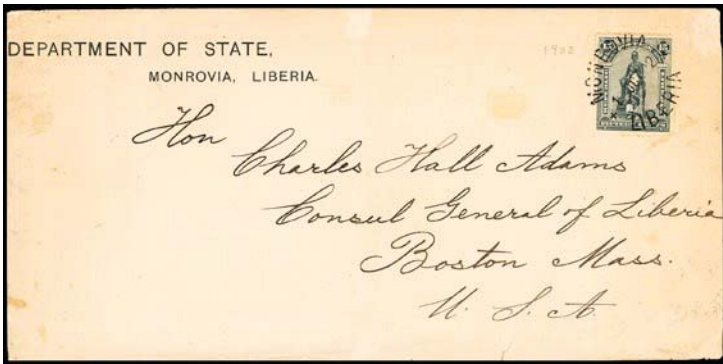 DEPARTMENT OF STATE,
MONROVIA, LIBERIA.
1902
MONROVIA
LIBERIA
Hon
Charles Hall Adams
Consul General of Liberia
Boston Mass.
U. S. A.